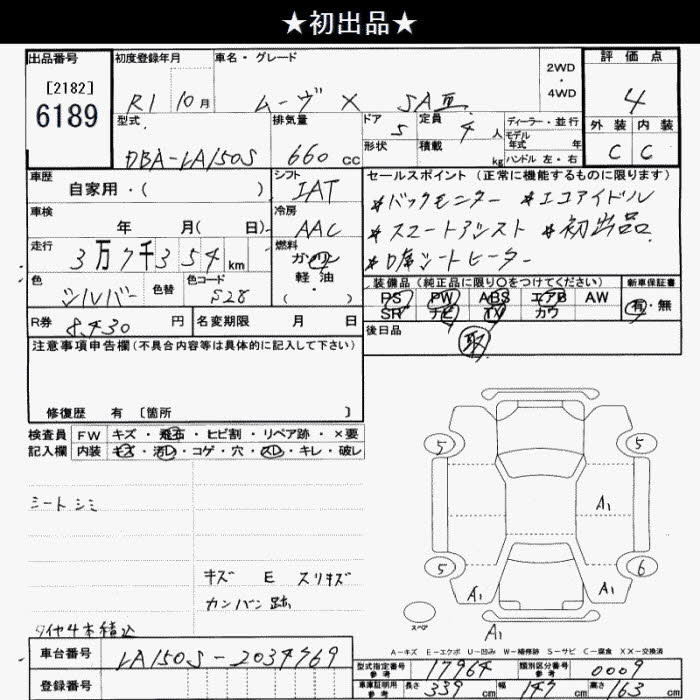 ★初出品★
出品番号
[2182]
6189
初度登録年月
R1 10月
車名・グレード
ムーヴ X SAⅢ
2WD
・
4WD
評価点
4
外装 内装
C C
型式
DBA-LA150S
排気量
660 cc
ドア 5
形状
定員 4 人
積載 kg
ディーラー・並行
モデル年式 年
ハンドル 左・右
車歴
自家用・( )
シフト
IAT
セールスポイント (正常に機能するものに限ります)
*バックモニター *エコアイドル
*スマートアシスト *初出品
*D席シートヒーター
車検
年 月( 日)
冷房
AAC
走行
3万7千354km
燃料
ガソリン
軽・油
( )
色
シルバー
色替
色コード
S28
装備品 (純正品に限り○をつけてください)
PS PW ABS エアB AW
SR ナビ TV カワ
新車保証書
有・無
R券
8430 円
名変期限 月 日
後日品
取
注意事項申告欄(不具合内容等は具体的に記入して下さい)
修復歴 有 [箇所 ]
検査員
記入欄
FW キズ・飛石・ヒビ割・リペア跡・×要
内装 キズ・汚レ・コゲ・穴・スレ・キレ・破レ
シートシミ
キズ E スリキズ
カンバン跡
タイヤ4本積込
5 5
A1
5 6
A1 A1
スペア
A1
A-キズ E-エクボ U-凹み W-補修跡 S-サビ C-腐食 XX-交換済
車台番号
LA150S-2034769
登録番号
型式指定番号 参考 17964
類別区分番号 参考 0009
車庫証明用 参考 長さ 339 cm 幅 147 cm 高さ 163 cm